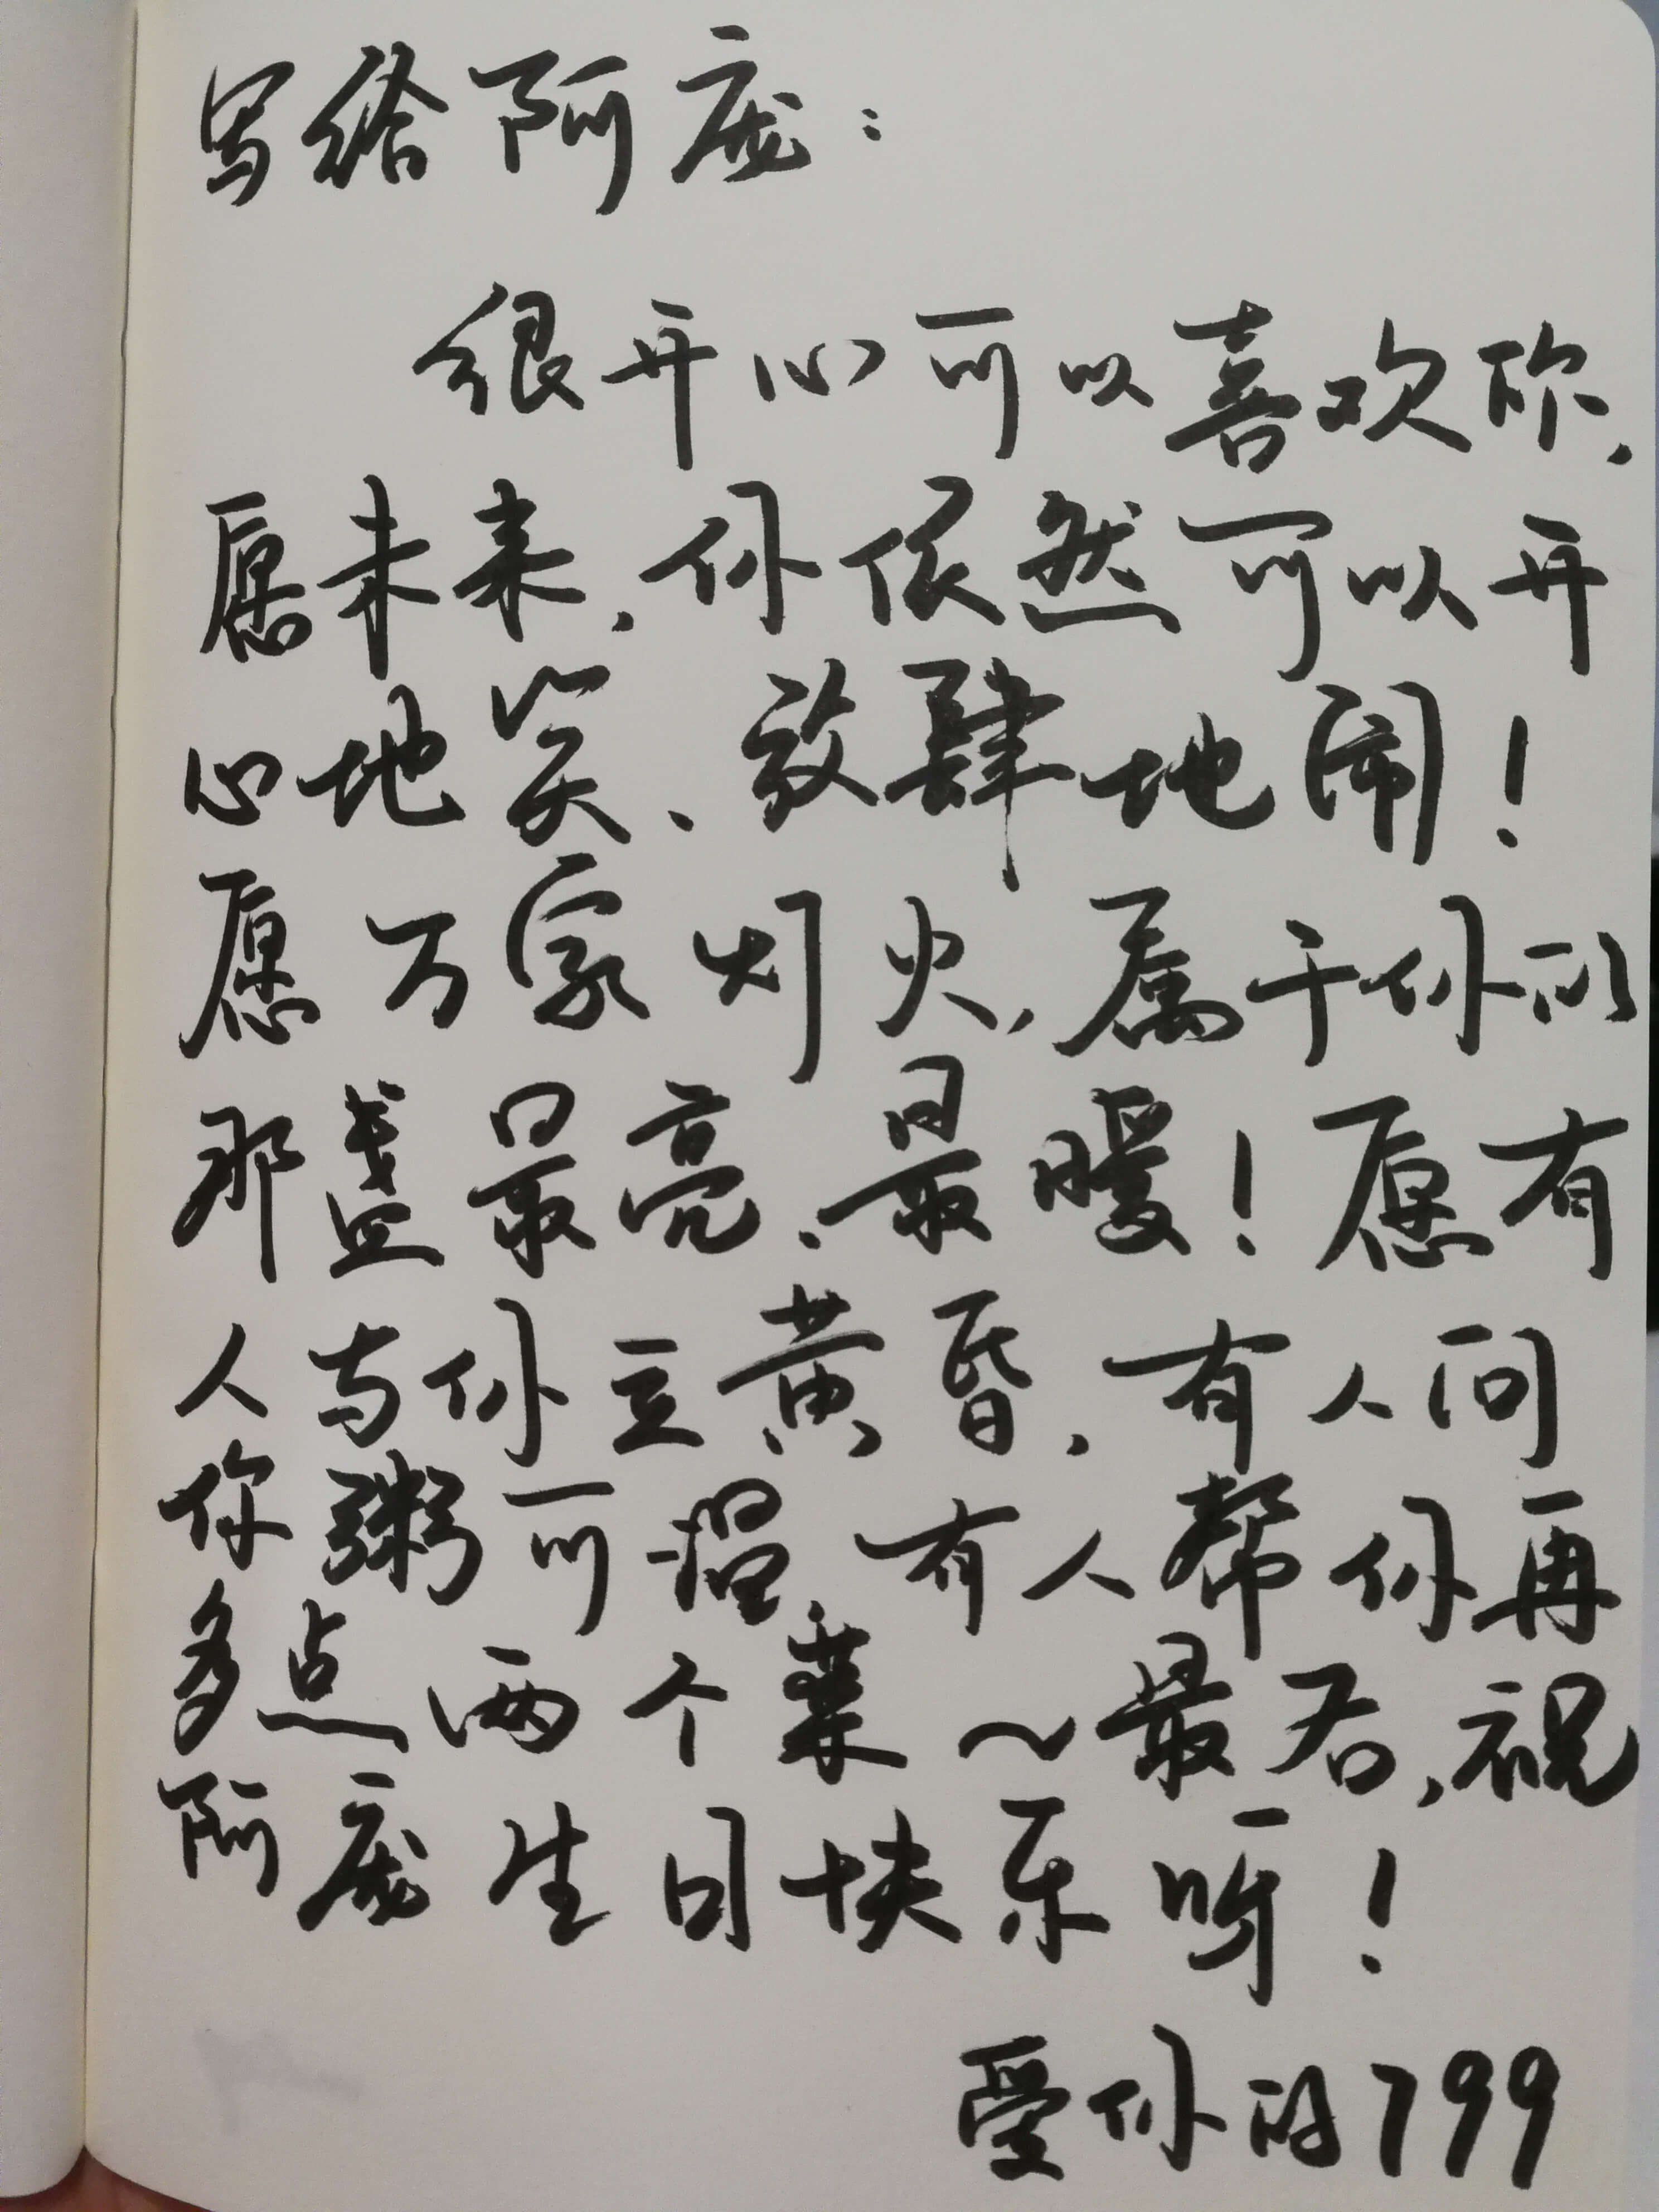 写给阿庞：
很开心可以喜欢你，
愿未来，你依然可以开
心地笑、放肆地闹！
愿万家灯火，属于你的
那盏最亮、最暖！愿有
人与你立黄昏，有人问
你粥可温，有人帮你再
多点两个菜～最后，祝
阿庞生日快乐呀！
爱你的799